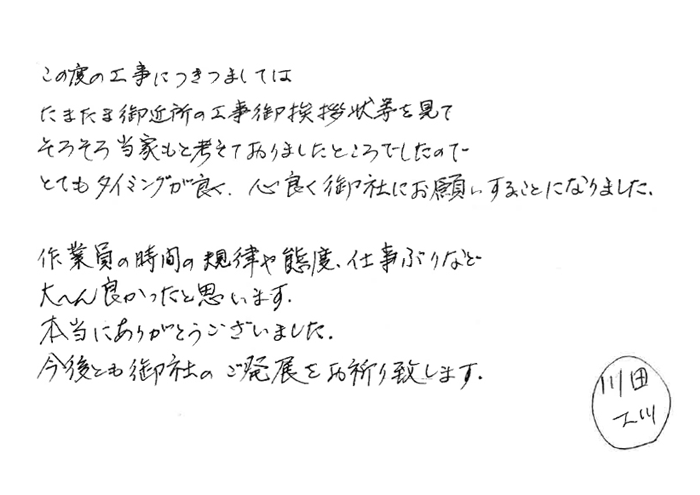 この度の工事につきつましては
たまたま御近所の工事御挨拶状等を見て
そろそろ当家もと考えておりましたところでしたので
とてもタイミングが良く、心良く御社にお願いすることになりました。
作業員の時間の規律や態度、仕事ぶりなど
大へん良かったと思います。
本当にありがとうございました。
今後とも御社のご発展をお祈り致します。
川田